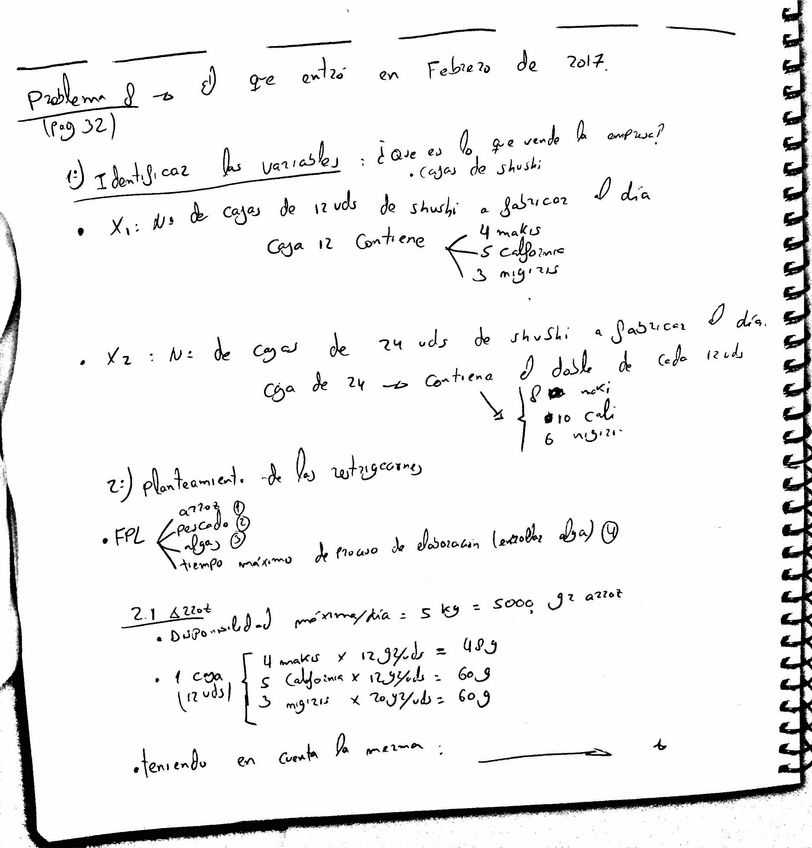 Problema 8 → el que entró en Febrero de 2017.
(Pag 32)
1º) Identificar las variables : ¿Que es lo que vende la empresa?
• Cajas de shushi
• X1: Nº de cajas de 12 uds de shushi a fabricar el día
Caja 12 Contiene
4 makis
5 california
3 nigiris
• X2 : Nº de cajas de 24 uds de shushi a fabricar el día.
Caja de 24 → Contiene el doble de cada 12 uds
8 maki
10 cali
6 nigiri.
2º) Planteamiento de las restricciones
• FPL
arroz ①
pescado ②
algas ③
tiempo máximo de proceso de elaboración (enrollar alga) ④
2.1 Arroz
• Disponibilidad máxima/día = 5 kg = 5000, gr arroz
• 1 caja (12 uds)
4 makis x 12 gr/uds = 48 g
5 California x 12 gr/uds = 60 g
3 nigiris x 20 gr/uds = 60 g
• teniendo en cuenta la merma : →